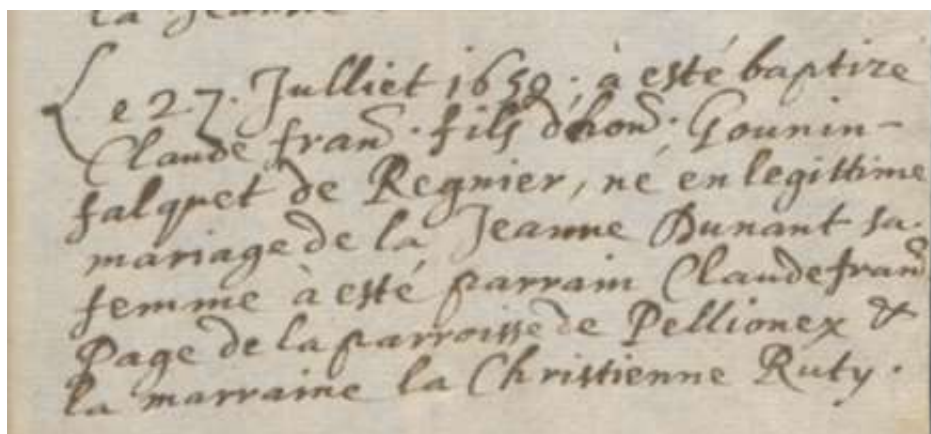 la Jeanne
Le 27. Julliet 1659; à esté baptize
Claude fran̄. fils d'hon̄. Gounin-
falquet de Regnier, né en legittime
mariage de la Jeanne Dunant sa.
femme à esté parrain Claude fran̄
Page de la parroisse de Pellionex &
la marraine la Christienne Ruty.